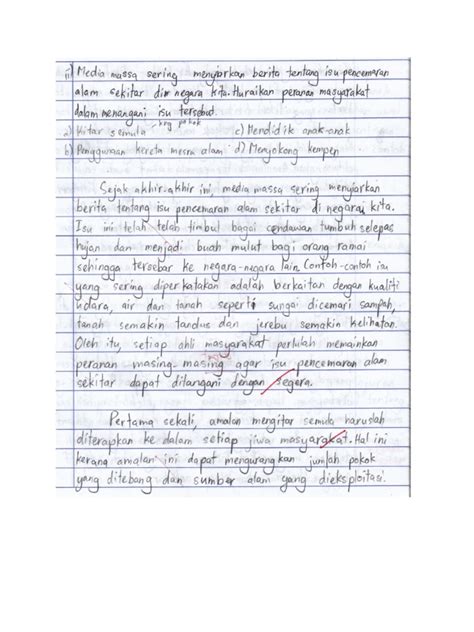 ii) Media massa sering menyiarkan berita tentang isu pencemaran
alam sekitar di negara kita. Huraikan peranan masyarakat
dalam menangani isu tersebut.
krg pokok
a) Kitar semula c) Mendidik anak-anak
b) Penggunaan kereta mesra alam d) Menyokong kempen
Sejak akhir-akhir ini, media massa sering menyiarkan
berita tentang isu pencemaran alam sekitar di negara kita.
Isu ini telah telah timbul bagai cendawan tumbuh selepas
hujan dan menjadi buah mulut bagi orang ramai
sehingga tersebar ke negara-negara lain. Contoh-contoh isu
yang sering diperkatakan adalah berkaitan dengan kualiti
udara, air dan tanah seperti sungai dicemari sampah,
tanah semakin tandus dan jerebu semakin kelihatan.
Oleh itu, setiap ahli masyarakat perlulah memainkan
peranan masing-masing agar isu pencemaran alam
sekitar dapat ditangani dengan segera.
Pertama sekali, amalan mengitar semula haruslah
diterapkan ke dalam setiap jiwa masyarakat. Hal ini
kerana amalan ini dapat mengurangkan jumlah pokok
yang ditebang dan sumber alam yang dieksploitasi.